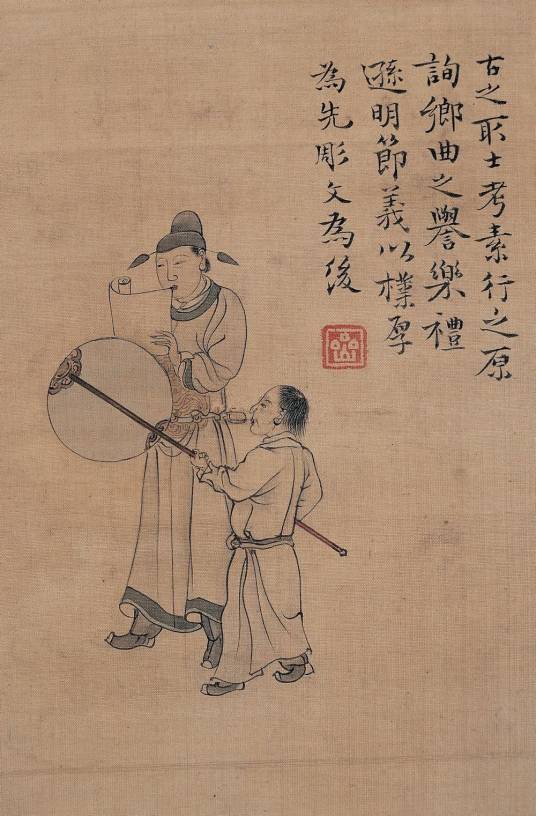 古之取士考素行之原
詢鄉曲之譽樂禮
遜明節義以樸厚
為先彫文為後